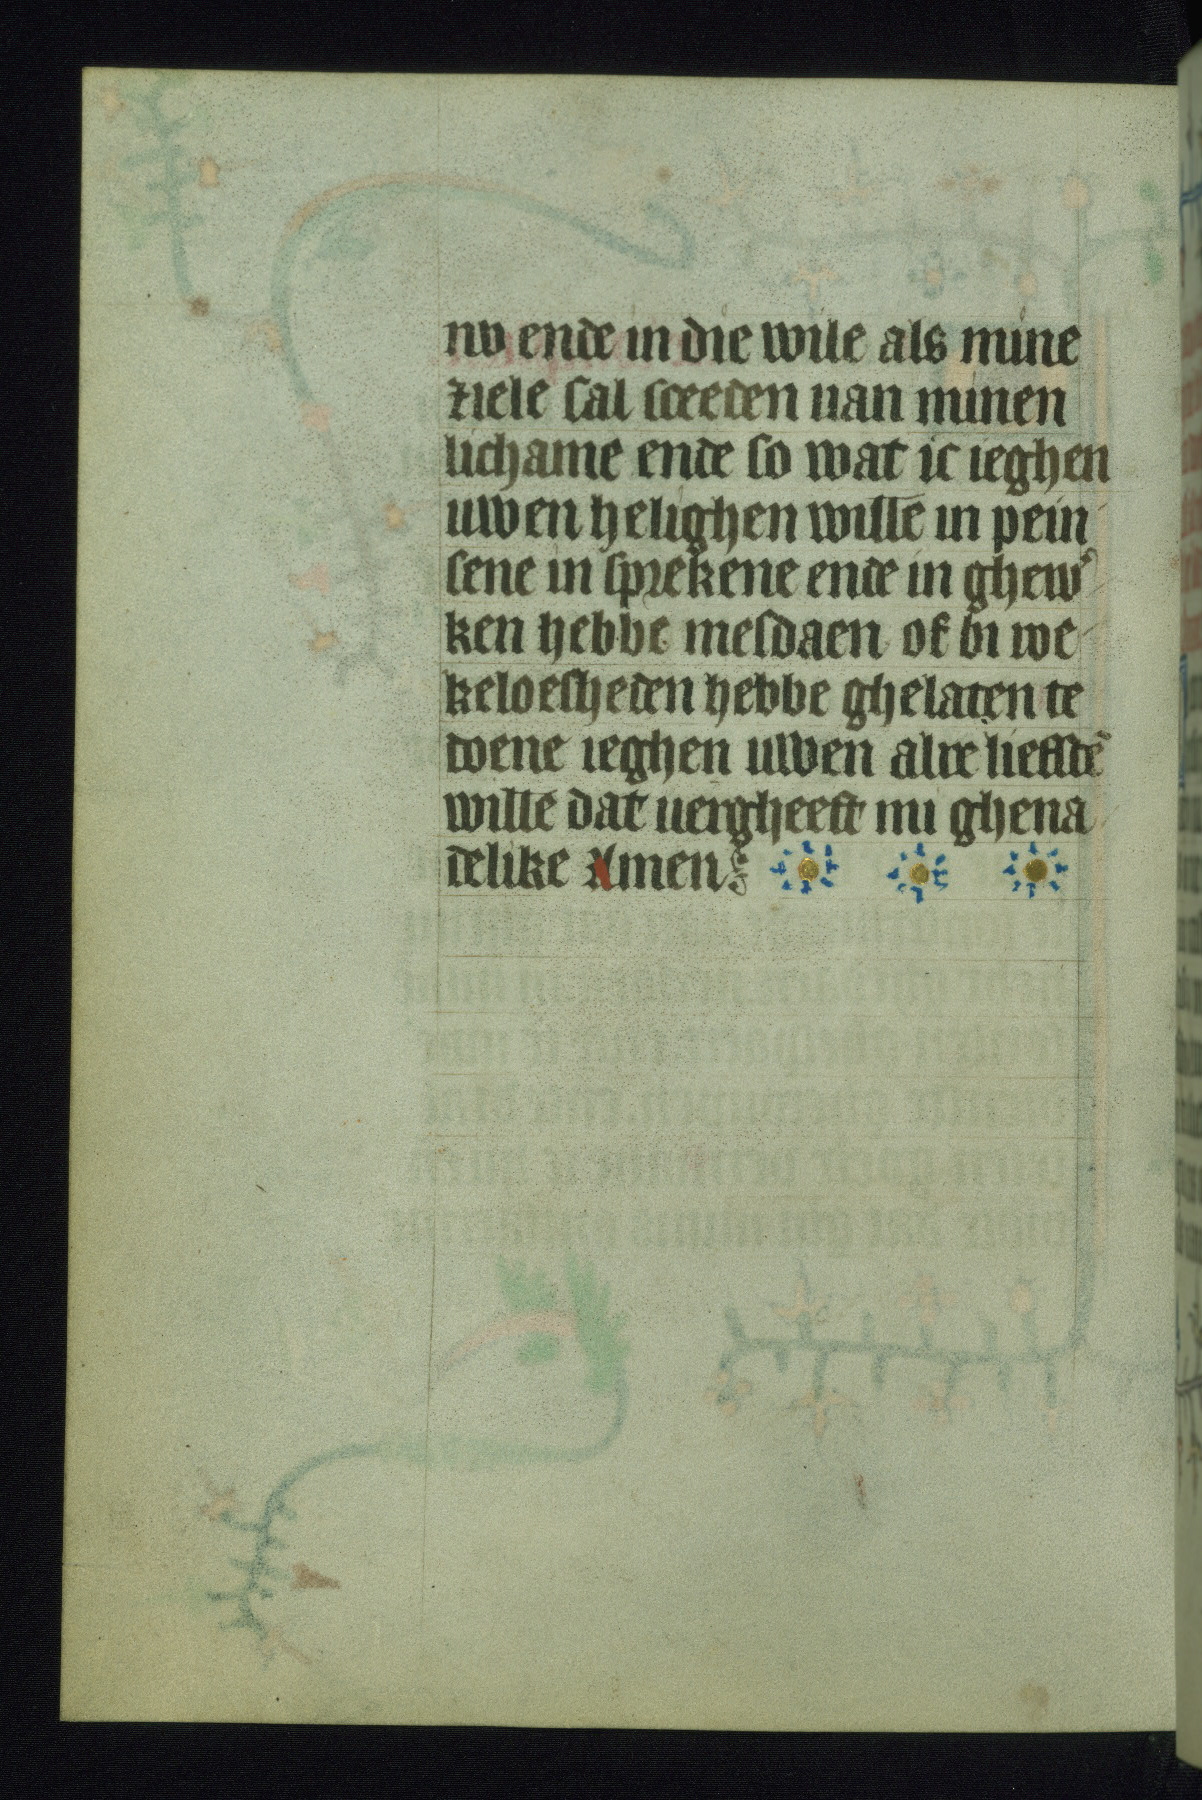 nv ende in die wile als mine
ziele sal sceeden uan minen
lichame ende so wat ic ieghen
uwen helighen wille in pein
sene in sprekene ende in ghew'
ken hebbe mesdaen of bi we
keloesheden hebbe ghelaten te
doene ieghen uwen alre liefstē
wille dat uergheeft mi ghena
delike Amen